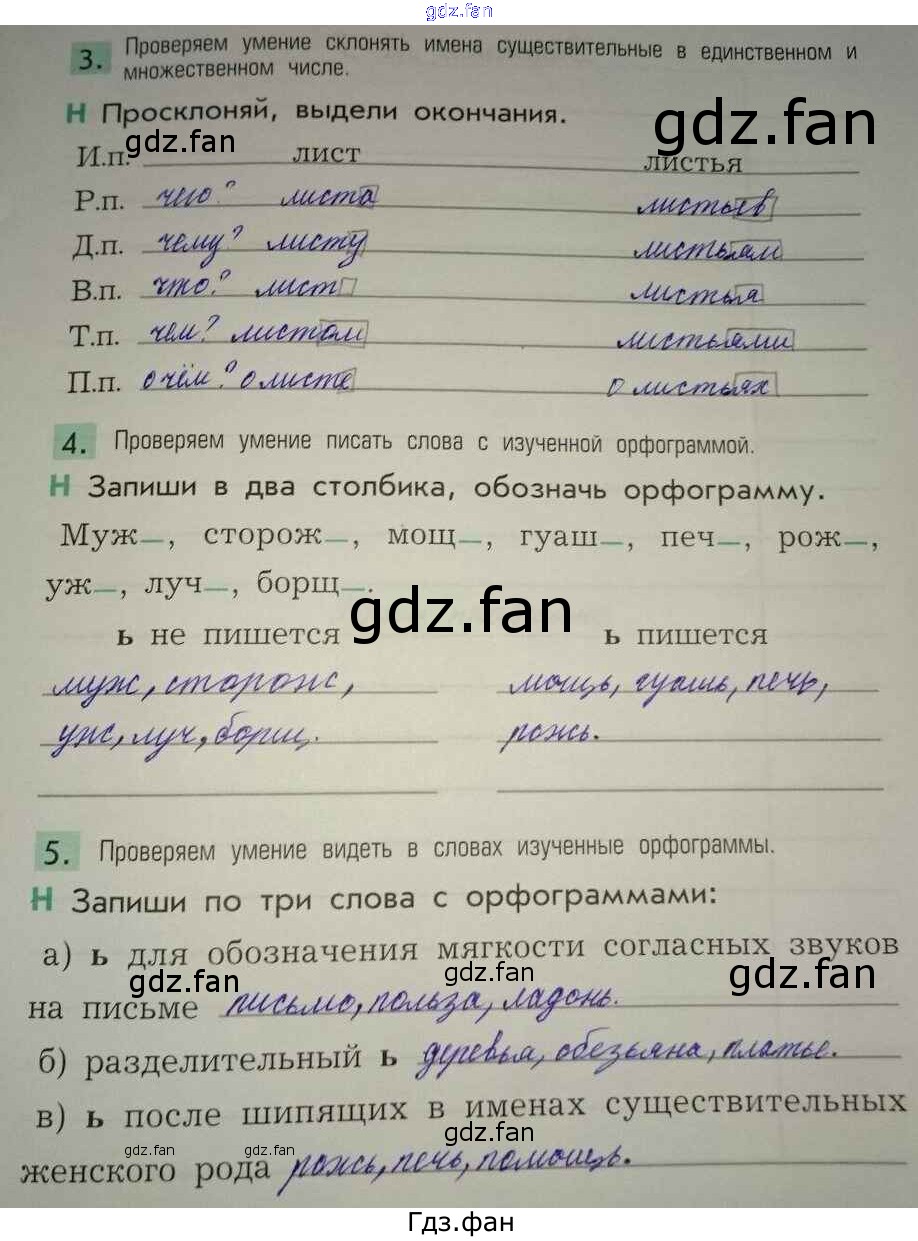 gdz.fan
3. Проверяем умение склонять имена существительные в единственном и
множественном числе.
Н Просклоняй, выдели окончания.
gdz.fan
gdz.fan
И.п. лист листья
Р.п. чего? листа листьев
Д.п. чему? листу листьям
В.п. что? лист листья
Т.п. чем? листом листьями
П.п. о чём? о листе о листьях
4. Проверяем умение писать слова с изученной орфограммой.
Н Запиши в два столбика, обозначь орфограмму.
Муж_, сторож_, мощ_, гуаш_, печ_, рож_,
уж_, луч_, борщ_.
gdz.fan
ь не пишется ь пишется
муж, сторож, мощь, гуашь, печь,
уж, луч, борщ. рожь.
5. Проверяем умение видеть в словах изученные орфограммы.
Н Запиши по три слова с орфограммами:
а) ь для обозначения мягкости согласных звуков
gdz.fan gdz.fan gdz.fan
на письме письмо, польза, ладонь.
б) разделительный ь деревья, обезьяна, платье.
в) ь после шипящих в именах существительных
gdz.fan gdz.fan gdz.fan
женского рода рожь, печь, помощь.
Гдз.фан